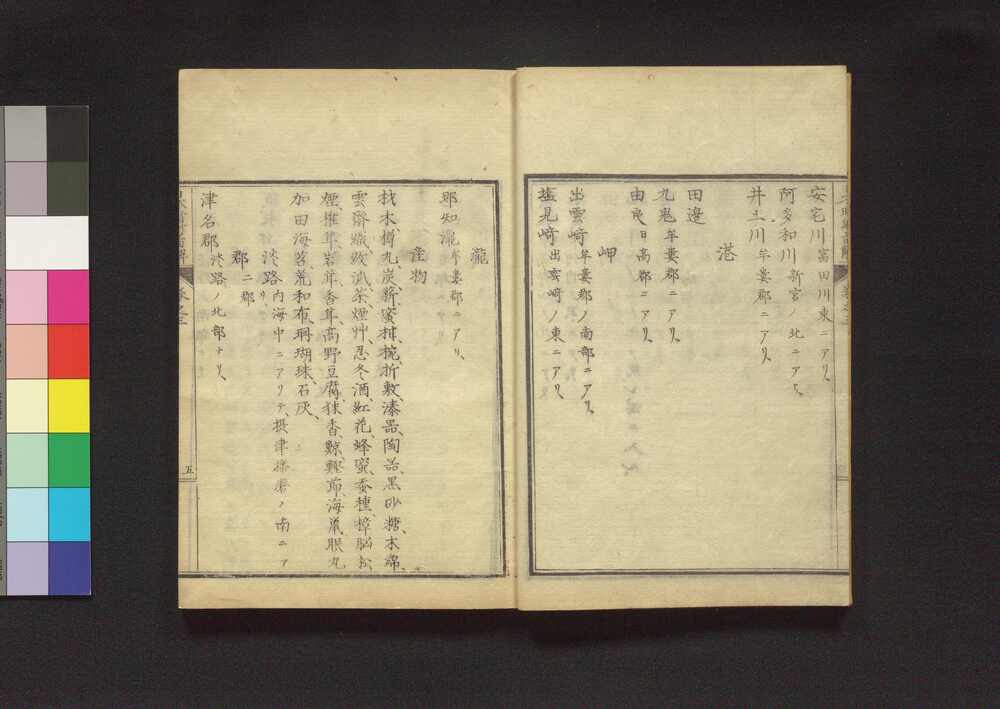 安宅川富田川東ニアリ、
阿多和川新宮ノ北ニアリ、
井土川牟婁郡ニアリ、
港
田邉
九鬼牟婁郡ニアリ、
由良日高郡ニアリ、
岬
出雲﨑牟婁郡ノ南部ニアリ、
塩見﨑出雲﨑ノ東ニアリ、
瀧
那知瀧牟婁郡ニアリ、
産物
材木、樽丸、炭、薪、蜜柑、椀、折敷、漆器、陶器、黒砂糖、木綿、
雲齋織、紙、茶、煙艸、忍冬酒、紅花、蜂蜜、蚕種、樟脳、松
煙、椎茸、岩茸、香茸、高野豆腐、鯨、鰹節、海鼠、眼丸
加田海苔、荒和布、珊瑚珠、石灰、
淡路内海中ニアリテ、摂津播磨ノ南ニア
リ、
郡二郡
津名郡淡路ノ北部ナリ、
五